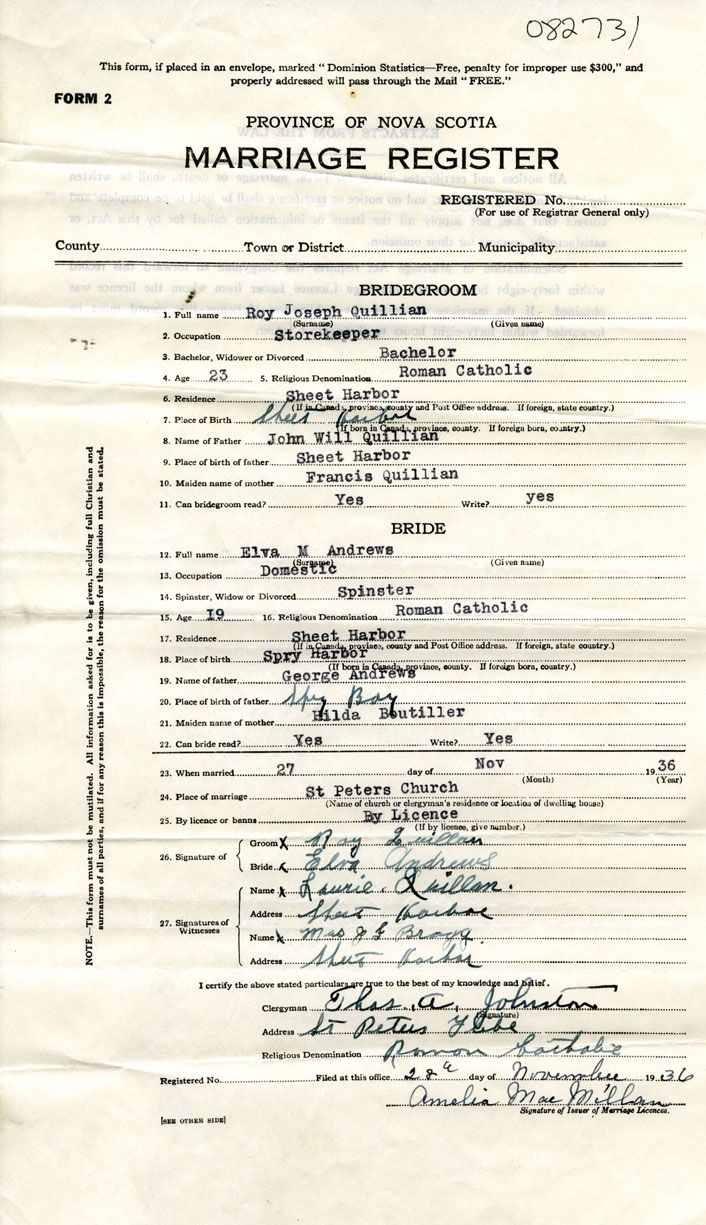 082731
This form, if placed in an envelope, marked "Dominion Statistics—Free, penalty for improper use $300," and
properly addressed will pass through the Mail "FREE."
FORM 2
PROVINCE OF NOVA SCOTIA
MARRIAGE REGISTER
REGISTERED No.
(For use of Registrar General only)
County Town or District Municipality
BRIDEGROOM
1. Full name Roy Joseph Quillian
(Surname) (Given name)
2. Occupation Storekeeper
3. Bachelor, Widower or Divorced Bachelor
4. Age 23 5. Religious Denomination Roman Catholic
6. Residence Sheet Harbor
(If in Canada, province, county and Post Office address. If foreign, state country.)
7. Place of Birth Sheet Harbor
(If born in Canada, province, county. If foreign born, country.)
8. Name of Father John Will Quillian
9. Place of birth of father Sheet Harbor
10. Maiden name of mother Francis Quillian
11. Can bridegroom read? Yes Write? yes
BRIDE
12. Full name Elva M Andrews
(Surname) (Given name)
13. Occupation Domestic
14. Spinster, Widow or Divorced Spinster
15. Age I9 16. Religious Denomination Roman Catholic
17. Residence Sheet Harbor
(If in Canada, province, county and Post Office address. If foreign, state country.)
18. Place of birth Spry Harbor
(If born in Canada, province, county. If foreign born, country.)
19. Name of father George Andrews
20. Place of birth of father Spry Bay
21. Maiden name of mother Hilda Boutiller
22. Can bride read? Yes Write? Yes
23. When married 27 day of Nov 1936
(Month) (Year)
24. Place of marriage St Peters Church
(Name of church or clergyman's residence or location of dwelling house)
25. By licence or banns By Licence
(If by licence, give number.)
26. Signature of
Groom X Roy Quillan
Bride X Elva Andrews
27. Signatures of Witnesses
Name X Laurie Quillan.
Address Sheet Harbor
Name X Mrs J G Bragg
Address Sheet Harbor
I certify the above stated particulars are true to the best of my knowledge and belief.
Clergyman Thos. A. Johnston
(Signature)
Address St Peters Glebe
Religious Denomination Roman Catholic
Registered No. Filed at this office 28th day of November 1936
Amelia MacMillan
Signature of Issuer of Marriage Licences.
[SEE OTHER SIDE]
NOTE.—This form must not be mutilated. All information asked for is to be given, including full Christian and
surnames of all parties, and if for any reason this is impossible, the reason for the omission must be stated.